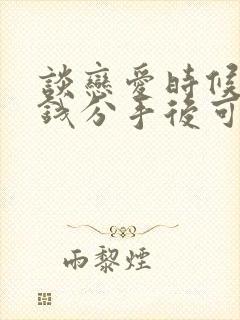 談戀愛時候
錢分手後可
雨黎煙